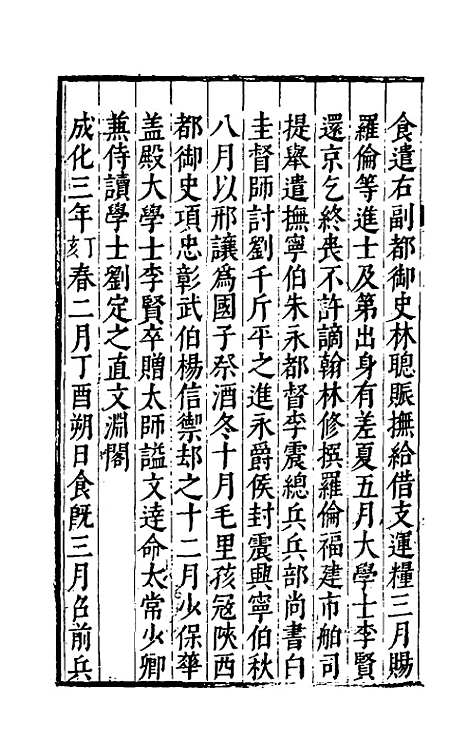 食遣右副都御史林聰賑撫給借支運糧三月賜
羅倫等進士及第出身有差夏五月大學士李賢
還京乞終喪不許謫翰林修撰羅倫福建市舶司
提舉遣撫寧伯朱永都督李震總兵兵部尚書白
圭督師討劉千斤平之進永爵侯封震興寧伯秋
八月以邢讓爲國子祭酒冬十月毛里孩冦陝西
都御史項忠彰武伯楊信禦却之十二月少保華
盖殿大學士李賢卒贈太師謚文達命太常少卿
兼侍讀學士劉定之直文淵閣
成化三年丁亥春二月丁酉朔日食旣三月召前兵